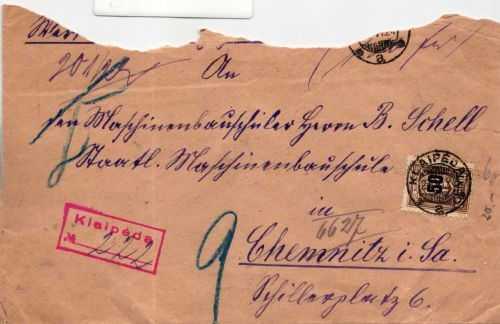 An
den Maschinenbauschüler Herrn B. Schell
Staatl. Maschinenbauschule
in
6627
Chemnitz i. Sa.
Schillerplatz 6.
9
Klaipėda
№ 222
KLAIPEDA
50
a